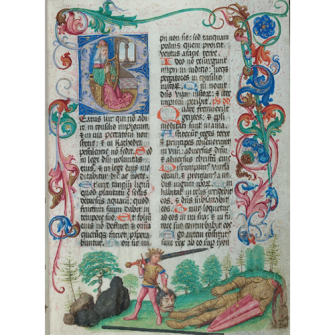 Eatus uir qui non ab
iit in consilio impiorum
et in via peccatorum non
stetit: et in kathedra
pestilencie no sedit. Sed
in lege dni voluntas
eius: et in lege eius me
ditabitur die ac nocte.
Et erit tanqua lignu
quod plantatu e secus
decursus aquaru: quod
fructum suum dabit in
tempore suo. Et foliu
eius no defluet: et omnia
quecunqz faciet prospera
buntur. Non sic im
pii non sic: sed tanquam
puluis quem proicit
ventus a facie terre.
Ideo no resurgunt
impii in iudicio: neqz
peccatores in consilio
iustorum. Qm nouit
dns viam iustor: et iter
impioru peribit. ps dd
Quare fremuerunt
gentes: et populi
meditati sunt inania.
Astiterut reges terre
et principes conuenerunt
in vnu: aduersus dnm et
aduersus christu eius.
Dirumpamus vincula
eorum: et proiiciamus a no
bis iugum ipsoru. Qui
habitat in celis irridebit
eos: et dns subsannabit
eos. Tunc loquetur
ad eos in ira sua: et in fu
rore suo conturbabit eos.
Ego autem constitut9
sum rex ab eo sup syon